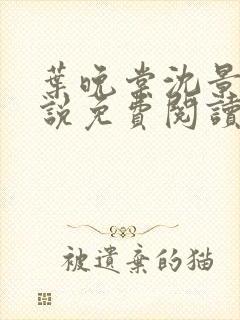 葉晚棠沈景
說免費閱讀
被遺棄的猫